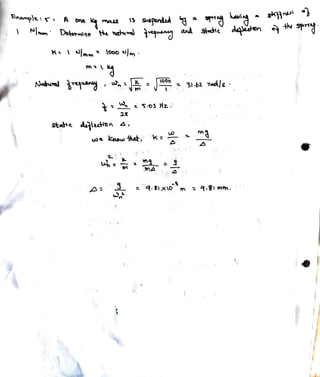 Example : 5 : A one kg mass is suspended by a spring having a stiffness of
1 N/mm. Determine the natural frequency and static deflection of the spring.
K = 1 N/mm = 1000 N/m.
m = 1 kg
Natural frequency, ωn = √(K/m) = √(1000/1) = 31.62 rad/s.
f = ωn/2π = 5.03 Hz.
static deflection Δ.
we know that, K = W/Δ = mg/Δ
ωn² = K/m = mg/mΔ = g/Δ
Δ = g/ωn² = 9.81×10⁻³ m = 9.81 mm.